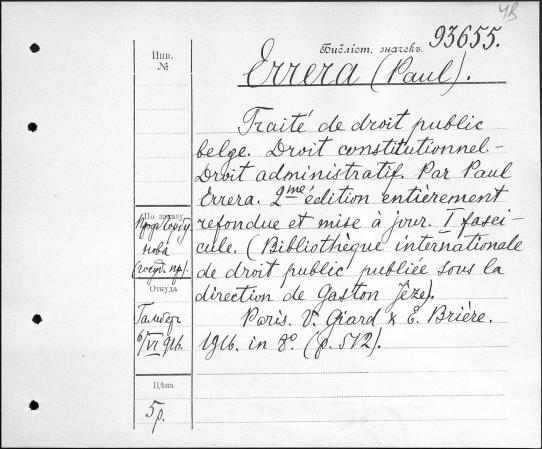 ЧВ
Библіот. значекъ. 93655.
Инв.
№
Errera (Paul).
Traité de droit public
belge. Droit constitutionnel.-
Droit administratif. Par Paul
Errera. 2me édition entièrement
refondue et mise à jour. I fasci-
cule. (Bibliothèque internationale
de droit public publiée sous la
direction de Gaston Jèze).
Paris. V. Giard & E. Brière.
1916. in 8º. (p. 512).
По заказу
Проф. Горбу
нова
(госуд. пр.).
Откуда
Гамбер
6/VI 916.
Цѣна
5 р.